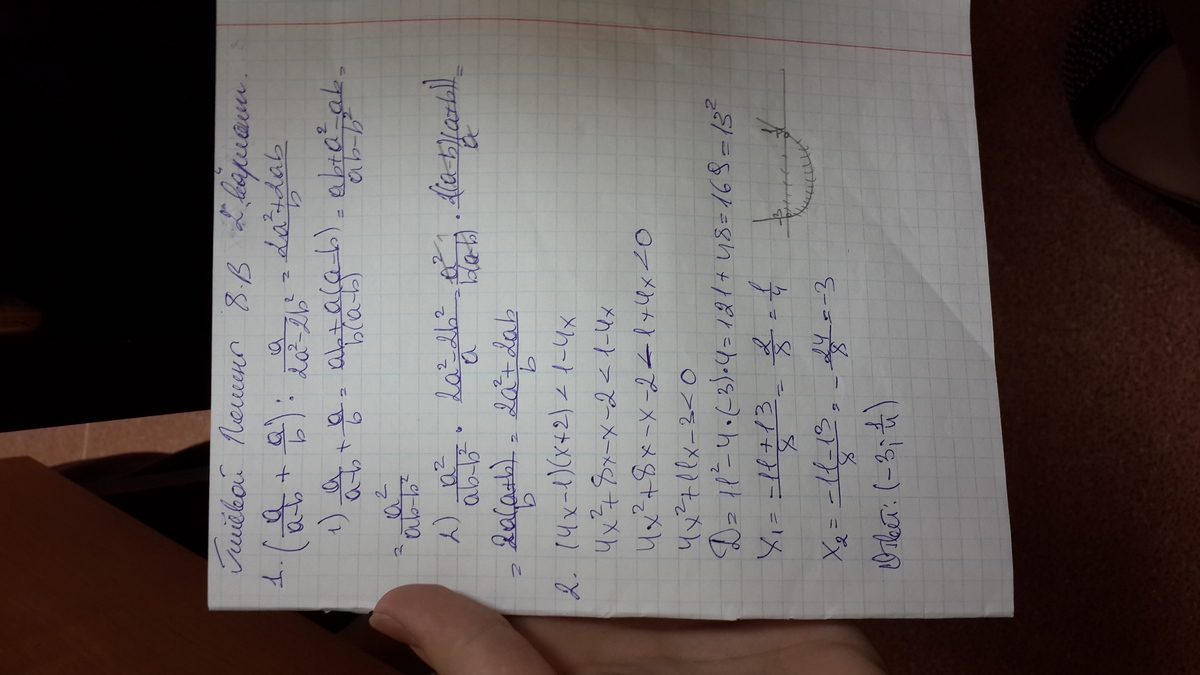 8.В 2 вариант.
1. (a/(a-b) + a/b) : a/(2a²-2b²) = (2a²+2ab)/b
1) a/(a-b) + a/b = (ab+a(a-b))/(b(a-b)) = (ab+a²-ab)/(ab-b²) =
= a²/(ab-b²)
2) a²/(ab-b²) · (2a²-2b²)/a = a²/(b(a-b)) · (2(a-b)(a+b))/a =
= (2a(a+b))/b = (2a²+2ab)/b
2. (4x-1)(x+2)<1-4x
4x²+8x-x-2<1-4x
4x²+8x-x-2-1+4x<0
4x²+11x-3<0
D=11²-4·(-3)·4=121+48=169=13²
x₁=(-11+13)/8=2/8=1/4
x₂=(-11-13)/8=-24/8=-3
Ответ: (-3; 1/4)